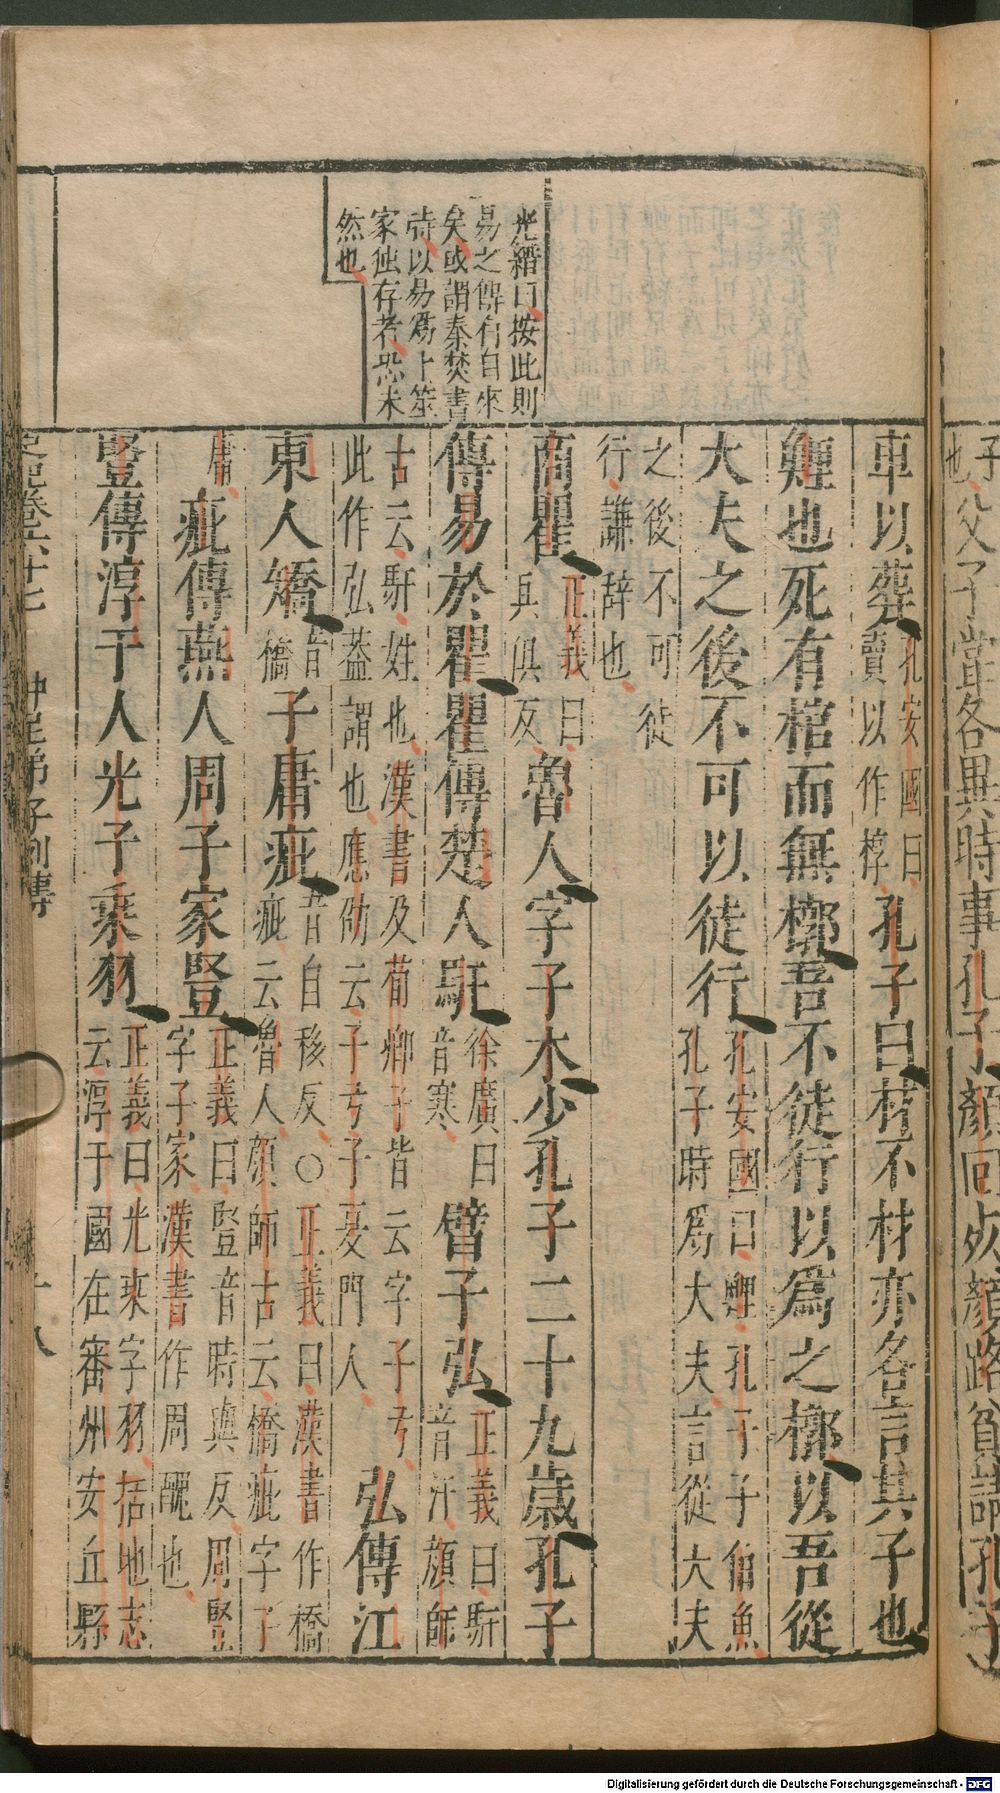 光縉曰按此則
易之傳有自來
矣或謂秦焚書
時以易為卜筮
家独存者恐未
然也
車以葬孔安國曰賣以作椁孔子曰材不材亦各言其子也
鯉也死有棺而無槨吾不徒行以爲之槨以吾從
大夫之後不可以徒行孔安國曰鯉孔子子伯魚孔子時爲大夫言從大夫
之後不可徒行謙辞也
商瞿正義曰具俱反魯人字子木少孔子二十九歲孔子
傳易於瞿瞿傳楚人馯徐廣曰音寒臂子弘正義曰馯音汗顏師
古云馯姓也漢書及荀卿子皆云字子弓此作弘葢謂也應劭云子弓子夏門人弘傳江
東人矯音橋子庸疵音自移反○正義曰漢書作橋疵云魯人顏師古云橋疵字子
庸疵傳燕人周子家豎正義曰豎音時與反周豎字子家漢書作周醜也
豎傳淳于人光子乘羽正義曰光乘字羽括地志云淳于國在審州安丘縣
史記卷六十七 仲尼弟子列傳 十八
子也父子當各異時事孔子顏回死顏路貧請孔子
Digitalisierung gefördert durch die Deutsche Forschungsgemeinschaft - DFG